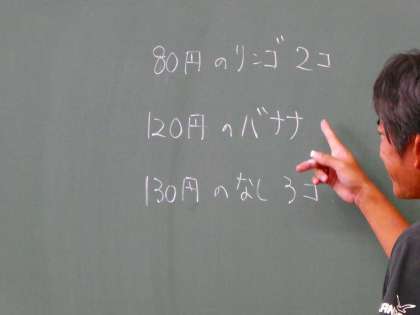 80円のリンゴ2コ
120円のバナナ
130円のなし3コ